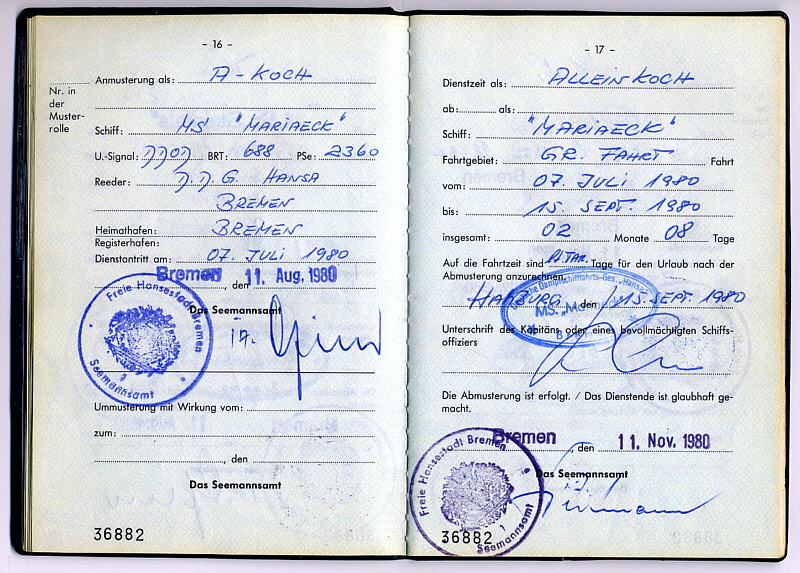 - 16 -
Nr. in
der
Muster-
rolle
Anmusterung als: A-KOCH
Schiff: MS "MARIAECK"
U.-Signal: BRT: 688 PSe: 2360
Reeder: D.D.G. HANSA
BREMEN
Heimathafen: BREMEN
Registerhafen:
Dienstantritt am: 07. JULI 1980
Bremen, den 11. Aug. 1980
Das Seemannsamt
Freie Hansestadt Bremen
Seemannsamt
Ummusterung mit Wirkung vom:
zum:
, den
Das Seemannsamt
36882
- 17 -
Dienstzeit als: ALLEINKOCH
ab: als:
Schiff: "MARIAECK"
Fahrtgebiet: GR. FAHRT Fahrt
vom: 07. JULI 1980
bis: 15. SEPT. 1980
insgesamt: 02 Monate 08 Tage
Auf die Fahrtzeit sind Tage für den Urlaub nach der
Abmusterung anzurechnen.
HAMBURG, den 15. SEPT. 1980
Unterschrift des Kapitäns oder eines bevollmächtigten Schiffs-
offiziers
Die Abmusterung ist erfolgt. / Das Dienstende ist glaubhaft ge-
macht.
Bremen, den 11. Nov. 1980
Das Seemannsamt
Freie Hansestadt Bremen
Seemannsamt
36882